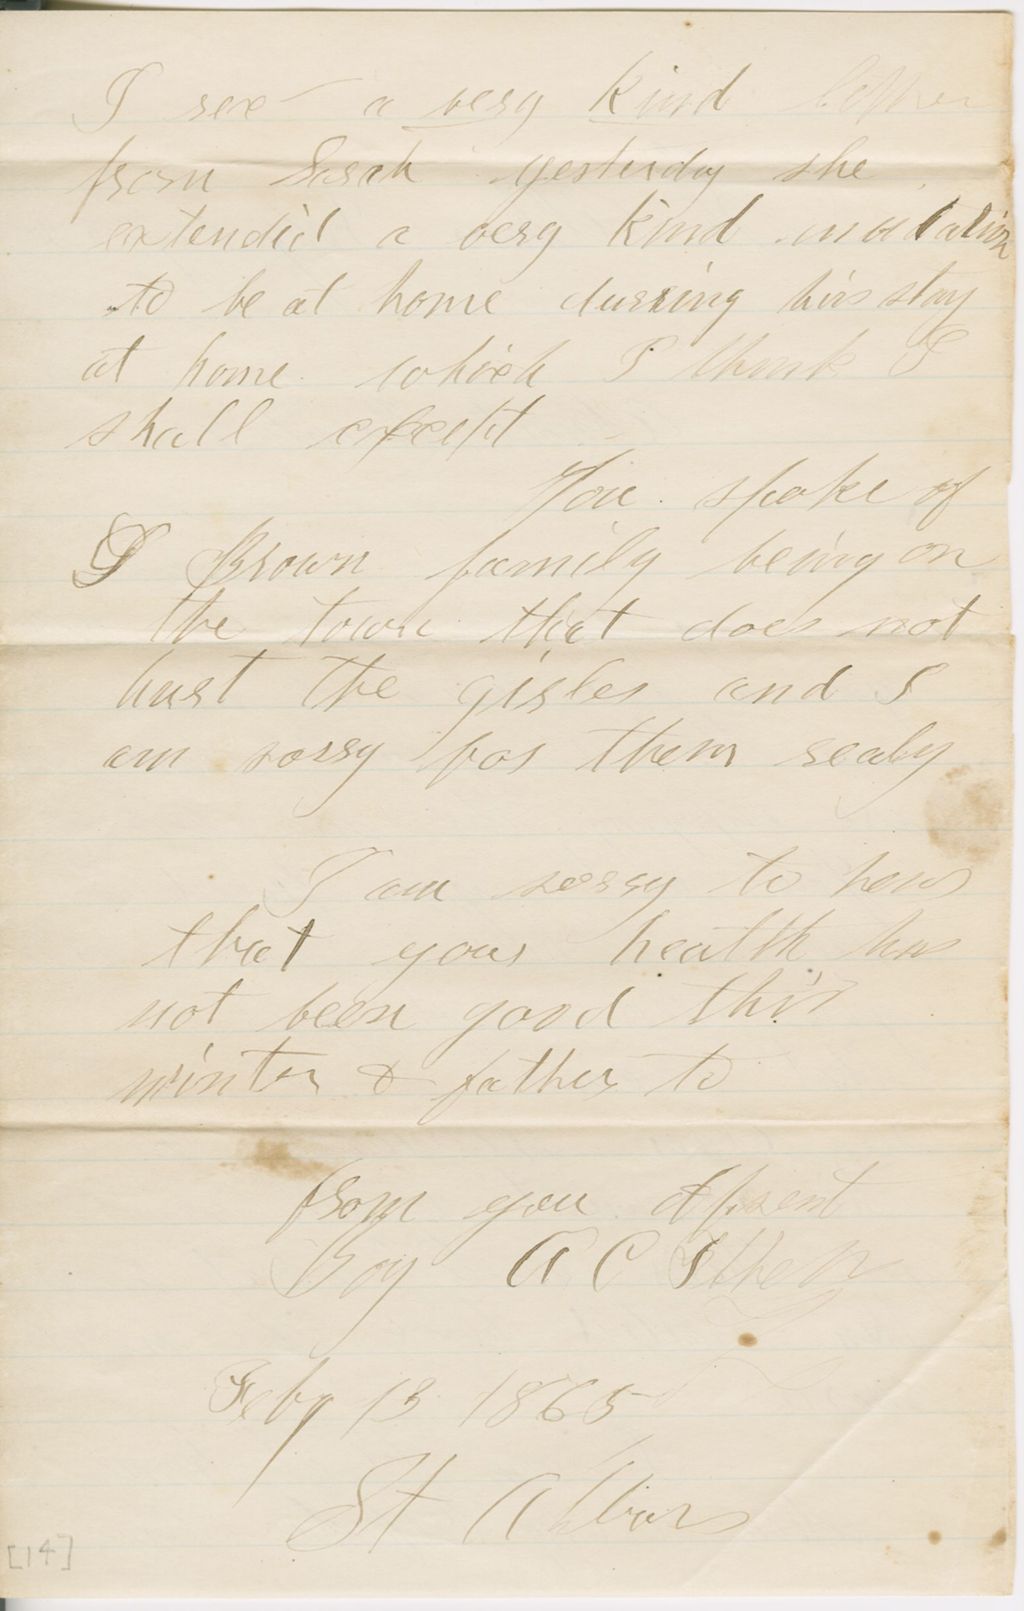 I rec a very kind letter
from Sarah yesterday she
extendid a very kind invitation
to be at home durring his stay
at home which I think I
shall except
You spoke of
Brown family being on
the town that does not
hurt the girles and I
am sorry for them realy
I am sorry to hear
that your health has
not been good this
winter & father to
from you absent
Boy A C
Feby 13 1865
St Albans
[14]